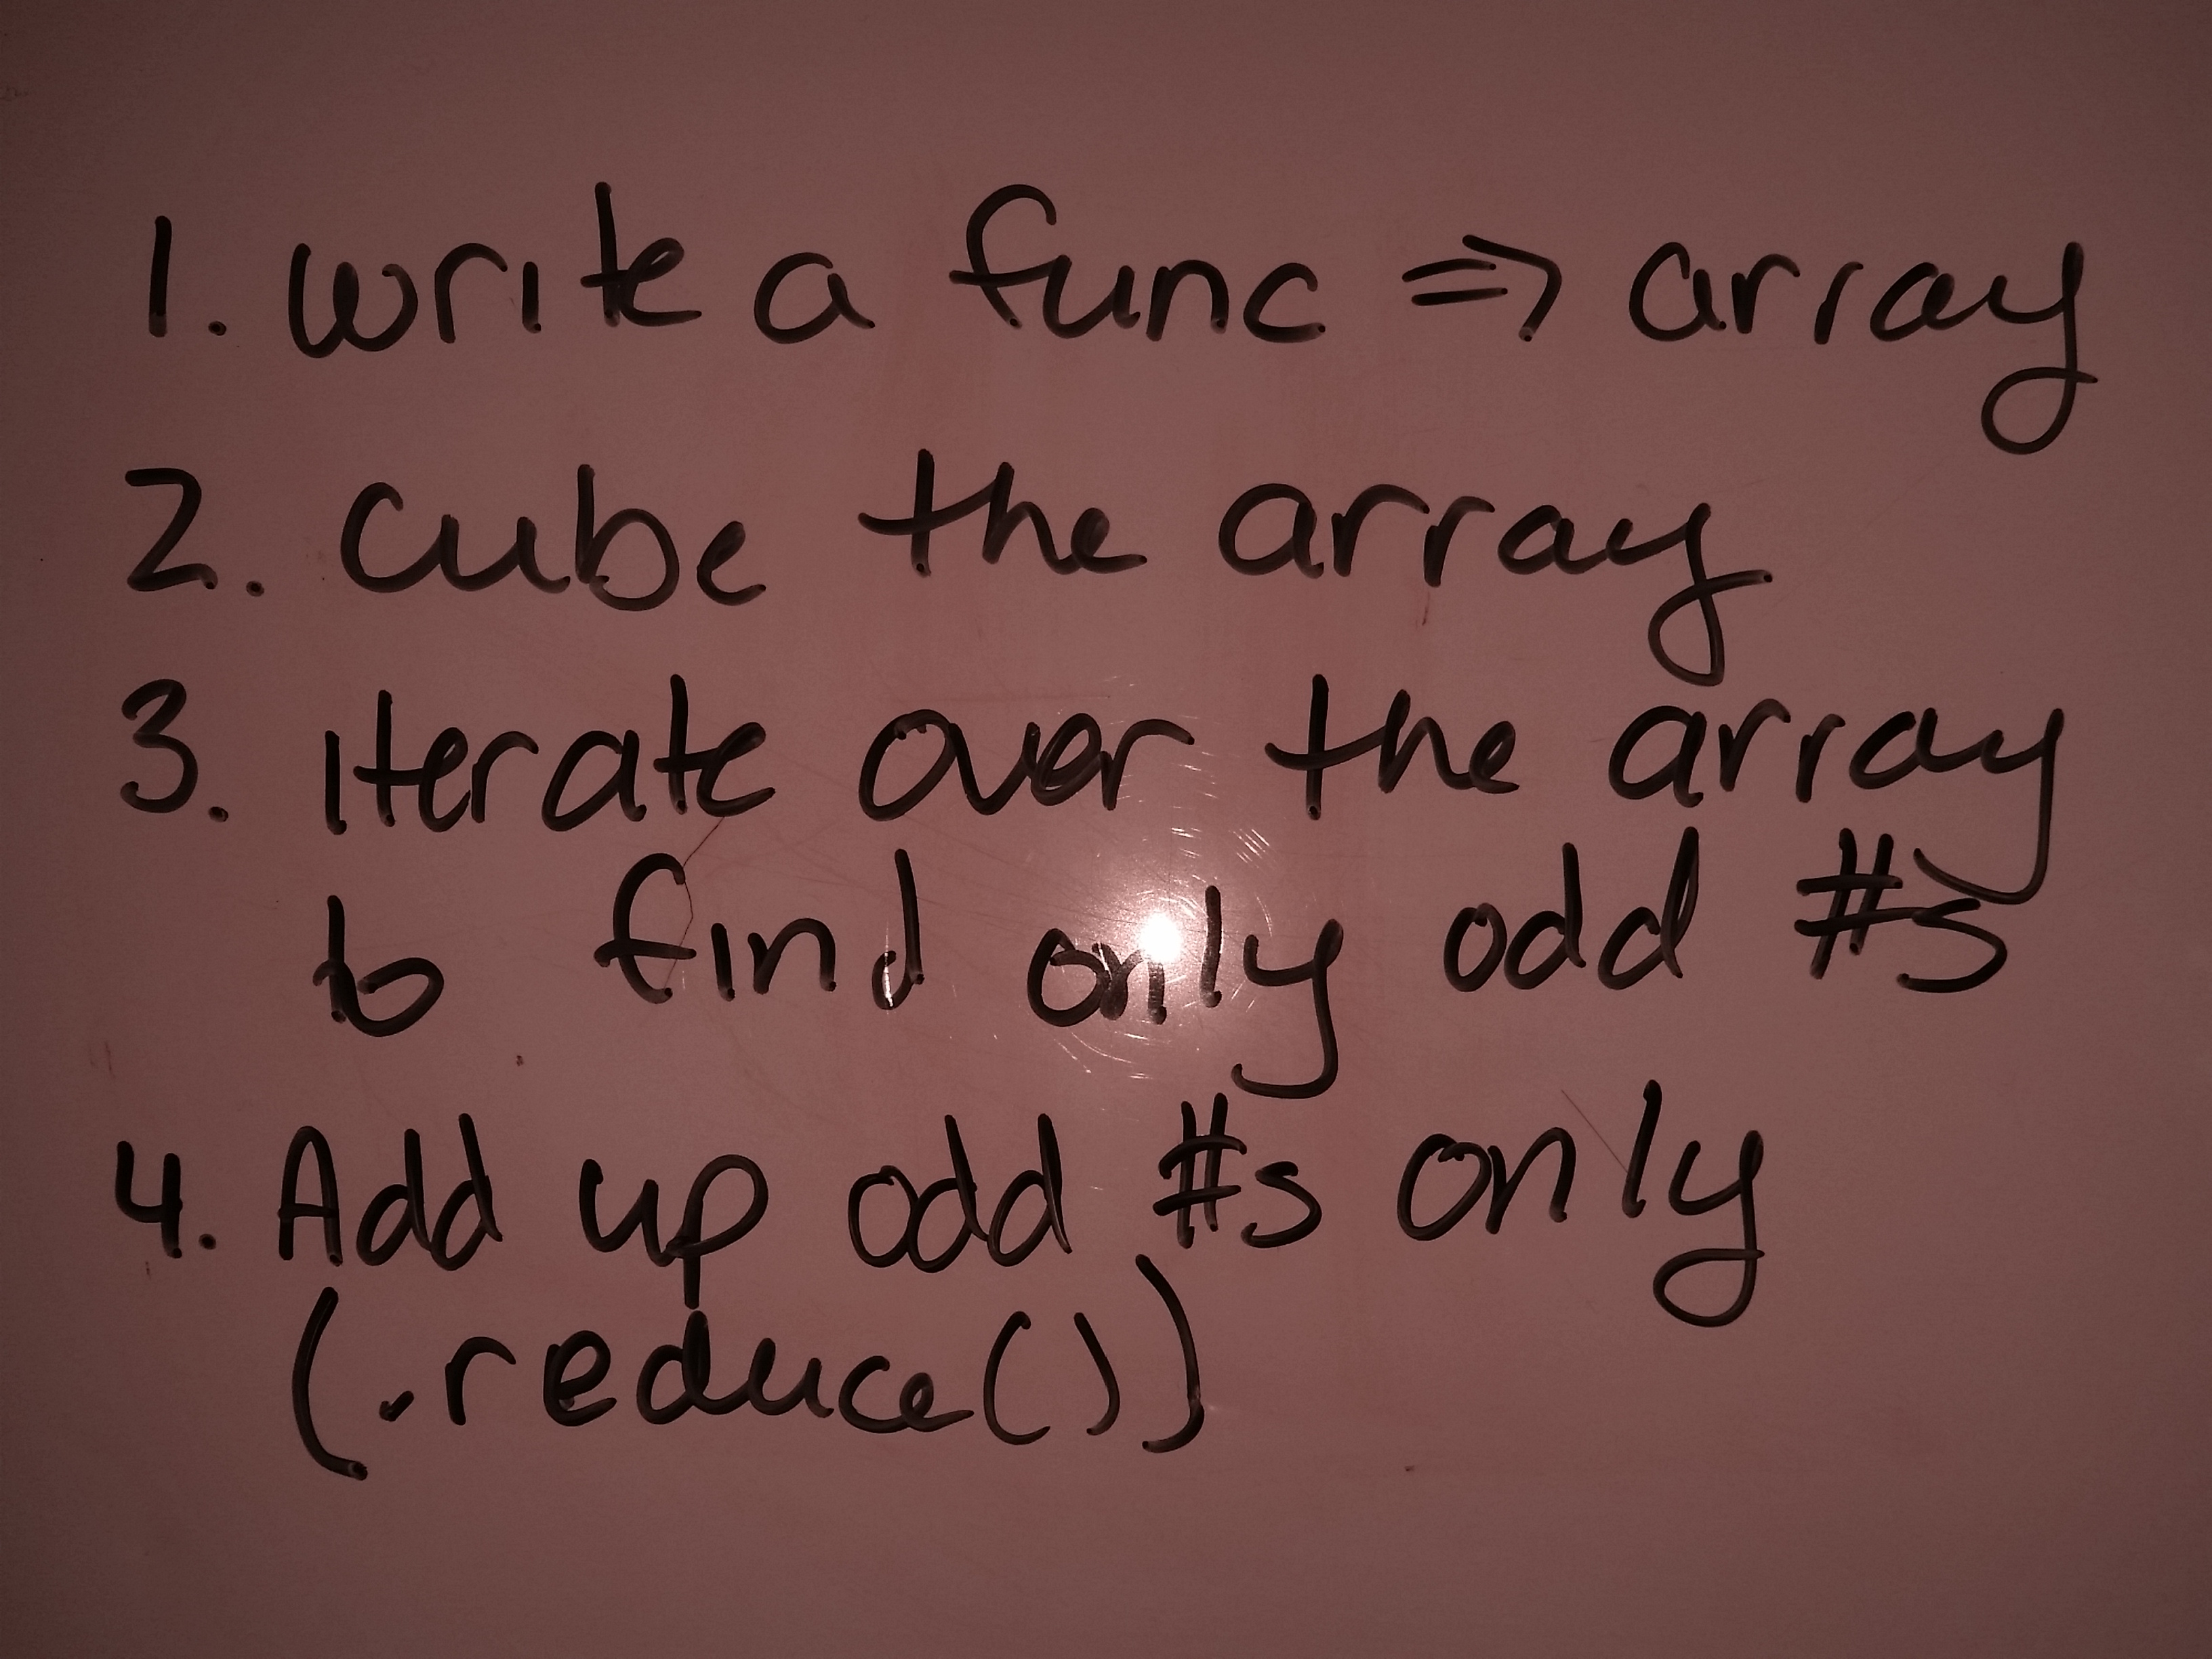 1. write a func => array
2. cube the array
3. iterate over the array
to find only odd #s
4. Add up odd #s only
(.reduce())